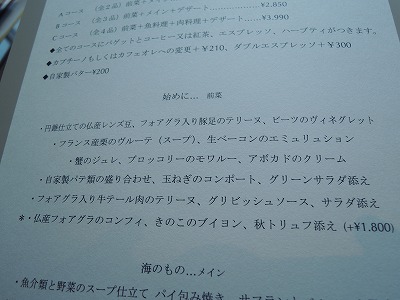 Aコース （全2品）前菜＋メイン
Bコース （全3品）前菜＋メイン＋デザート……………¥2.850
Cコース （全4品）前菜＋魚料理＋肉料理＋デザート……¥3.990
◆全てのコースにバゲットとコーヒー又は紅茶、エスプレッソ、ハーブティがつきます。
◆カプチーノもしくはカフェオレへの変更＋¥210、ダブルエスプレッソ＋¥300
◆自家製バター¥200
始めに… 前菜
・円錐仕立ての仏産レンズ豆、フォアグラ入り豚足のテリーヌ、ビーツのヴィネグレット
・フランス産栗のヴルーテ（スープ）、生ベーコンのエミュリュション
・蟹のジュレ、ブロッコリーのモワルー、アボカドのクリーム
・自家製パテ類の盛り合わせ、玉ねぎのコンポート、グリーンサラダ添え
・フォアグラ入り牛テール肉のテリーヌ、グリビッシュソース、サラダ添え
＊・仏産フォアグラのコンフィ、きのこのブイヨン、秋トリュフ添え (+¥1.800)
海のもの…メイン
・魚介類と野菜のスープ仕立て パイ包み焼き、サフラン